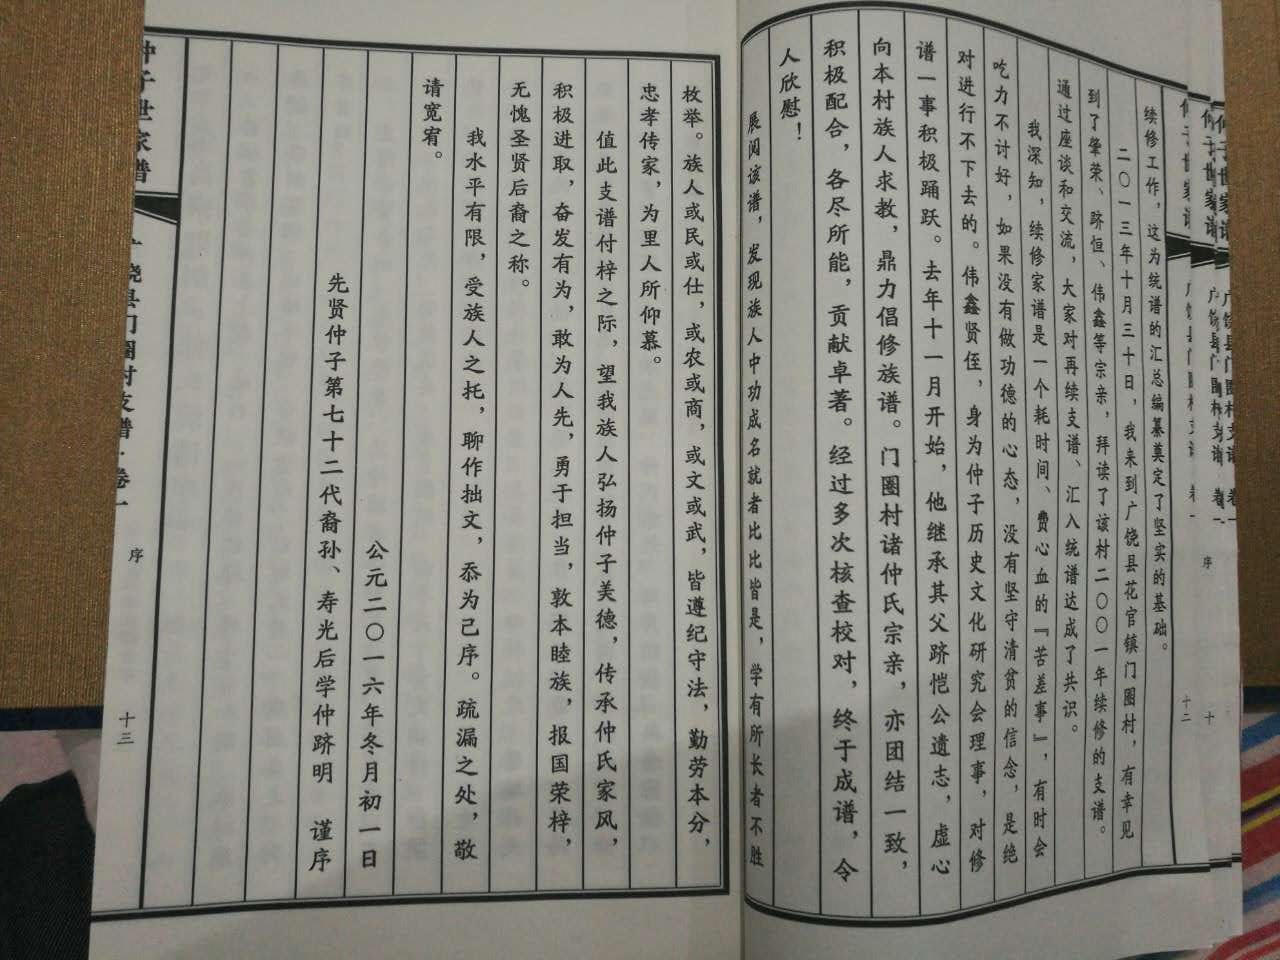 续修工作，这为统谱的汇总编纂奠定了坚实的基础。
二〇一三年十月三十日，我来到广饶县花官镇门圈村，有幸见
到了肇荣、跻恒、伟鑫等宗亲，拜读了该村二〇〇一年续修的支谱。
通过座谈和交流，大家对再续支谱、汇入统谱达成了共识。
我深知，续修家谱是一个耗时间、费心血的『苦差事』，有时会
吃力不讨好，如果没有做功德的心态，没有坚守清贫的信念，是绝
对进行不下去的。伟鑫贤侄，身为仲子历史文化研究会理事，对修
谱一事积极踊跃。去年十一月开始，他继承其父跻恺公遗志，虚心
向本村族人求教，鼎力倡修族谱。门圈村诸仲氏宗亲，亦团结一致，
积极配合，各尽所能，贡献卓著。经过多次核查校对，终于成谱，令
人欣慰！
展阅该谱，发现族人中功成名就者比比皆是，学有所长者不胜
枚举。族人或民或仕，或农或商，或文或武，皆遵纪守法，勤劳本分，
忠孝传家，为里人所仰慕。
值此支谱付梓之际，望我族人弘扬仲子美德，传承仲氏家风，
积极进取，奋发有为，敢为人先，勇于担当，敦本睦族，报国荣梓，
无愧圣贤后裔之称。
我水平有限，受族人之托，聊作拙文，忝为己序。疏漏之处，敬
请宽宥。
公元二〇一六年冬月初一日
先贤仲子第七十二代裔孙、寿光后学仲跻明 谨序
仲子世家谱
饶县门圈村支谱·卷一
序
十三
仲子世家谱
广饶县门圈村支谱 卷一
序
十二